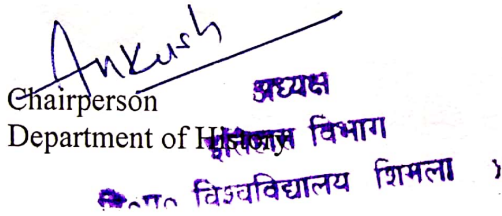 Ankush
Chairperson
अध्यक्ष
Department of History
इतिहास विभाग
हि०प्र० विश्वविद्यालय शिमला 5